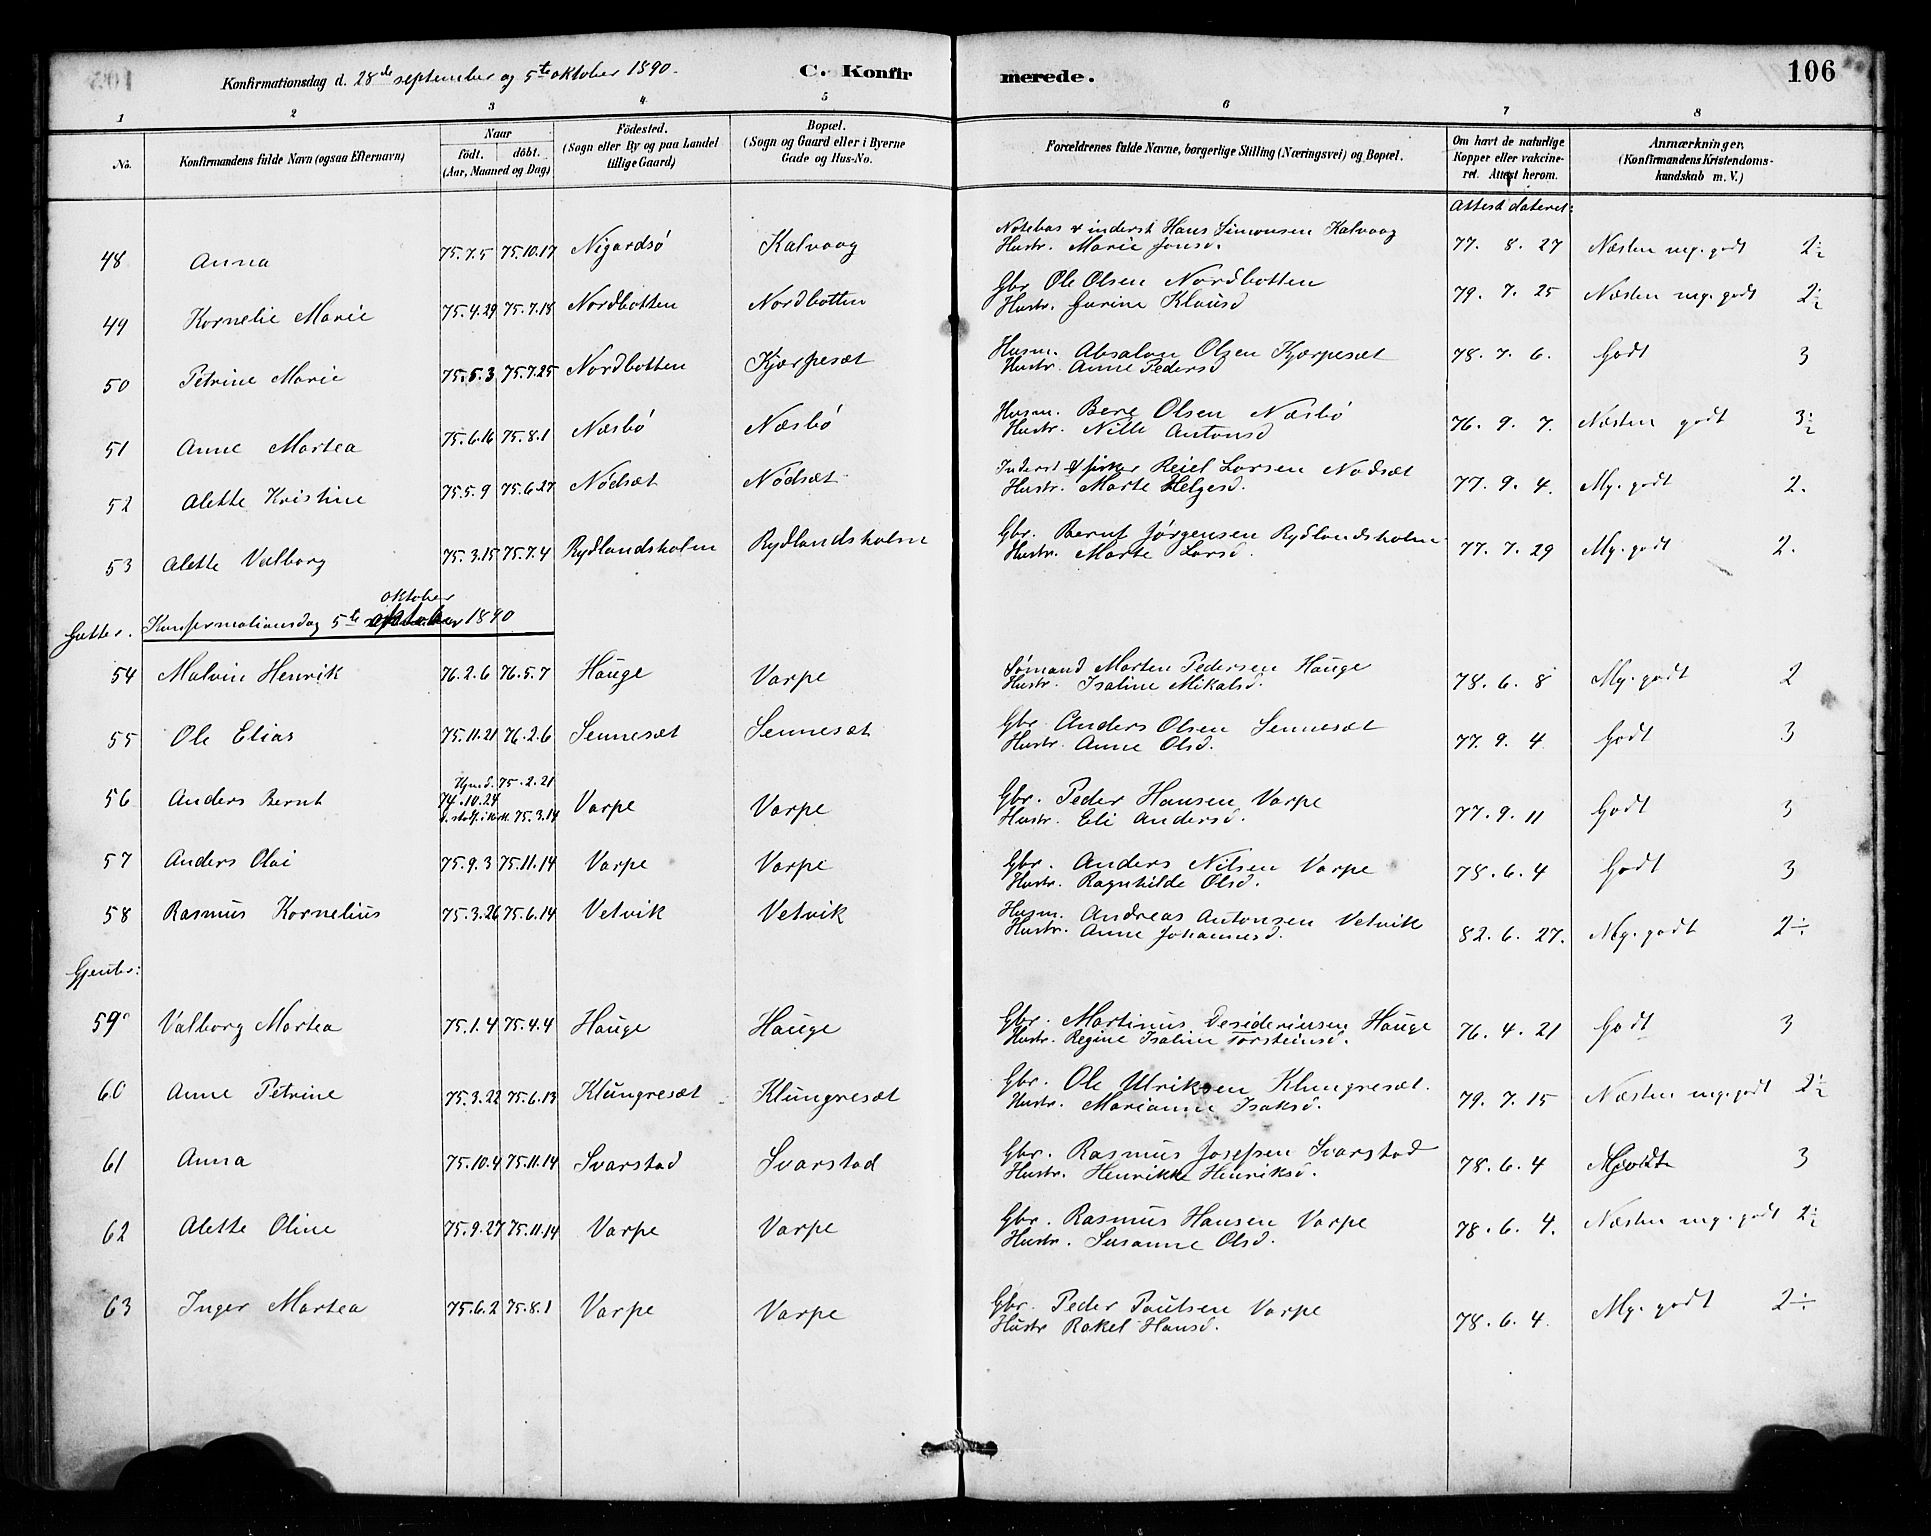 Konfirmationsdag d. 28de september og 5te oktober 1890.
C. Konfirmerede.
106
1 2 3 4 5 6 7 8
No.
Konfirmandens fulde Navn (ogsaa Efternavn)
Naar
födt. döbt.
(Aar, Maaned og Dag)
Födested.
(Sogn eller By og paa Landet
tillige Gaard)
Bopæl.
(Sogn og Gaard eller i Byerne
Gade og Hus-No.
Forældrenes fulde Navne, borgerlige Stilling (Næringsvei) og Bopæl.
Om havt de naturlige
Kopper eller vakcine-
ret. Attest herom.
Anmærkninger.
(Konfirmandens Kristendoms-
kundskab m. V.)
Attest dateret:
48 Anna 75.7.5 75.10.17 Nigardsö Kalvaag Notebas & inderst Hans Simonsen Kalvaag 77. 8. 27 Næsten mg. godt 2½
Hustr. Marie Jonsd.
49 Kornelie Marie 75.4.29 75.7.18 Nordbotten Nordbotten Gbr. Ole Olsen Nordbotten 79. 7. 25 Næsten mg. godt 2½
Hustr. Gurine Klausd
50 Petrine Marie 75.5.3 75.7.25 Nordbotten Kjærpesæt Husm. Absalon Olsen Kjærpesæt 78. 7. 6. Godt 3
Hustr. Anne Pedersd
51 Anne Martea 75.6.16 75.8.1 Næsbö Næsbö Husm. Olsen Næsbö 76. 9. 7. Næsten godt 3½
Hustr. Nille Antonsd
52 Alette Kristine 75.5.9 75.6.27 Nödsæt Nödsæt Inderst & fisker Reiel Larsen Nødsæt 77. 9. 4. Mg. godt 2.
Hustr. Marte Helgesd.
53 Alette Valborg 75.3.15 75.7.4 Rydlandsholm Rydlandsholm Gbr. Jørgensen Rydlandsholm 77. 7. 29 Mg. godt 2.
Hustr. Marte Larsd.
oktober
Gutter. Konfirmationsdag 5te oktober 1890
54 Malvin Henrik 76.2.6 76.5.7 Hauge Varpe Sømand Marten Pedersen Hauge 78. 6. 8 Mg. godt 2
Hustr. Isaline Mikalsd.
55 Ole Elias 75.11.21 76.2.6 Sennesæt Sennesæt Gbr. Anders Olsen Sennesæt 77. 9. 4 Godt 3
Hustr. Anne Olsd.
Hjmd. 75.2.21
56 Anders Bernt 74.10.24 Varpe Varpe Gbr. Peder Hansen Varpe 77. 9. 11 Godt 3
75.3.14 Hustr. Eli Andersd.
57 Anders Olai 75.9.3 75.11.14 Varpe Varpe Gbr. Anders Nilsen Varpe 78. 6. 4 Godt 3
Hustr. Ragnhilde Olsd.
58 Rasmus Kornelius 75.3.26 75.6.14 Vetvik Vetvik Husm. Andreas Antonsen Vetvik 82. 6. 27. Mg. godt 2÷
Hustr. Anne Johannesd.
Gjenter:
59 Valborg Martea 75.1.4 75.4.4 Hauge Hauge Gbr. Martinus Desideriusen Hauge 76. 4. 21 Godt 3
Hustr. Regine Isaline Torsteinsd.
60 Anne Petrine 75.3.22 75.6.13 Klungresæt Klungresæt Gbr. Ole Ulriksen Klungresæt. 79. 7. 15 Næsten mg. godt 2½
Hustr. Marianne Isaksd.
61 Anna 75.10.4 75.11.14 Svarstad Svarstad Gbr. Rasmus Josefsen Svarstad 78. 6. 4 3
Hustr. Henrikke Henriksd.
62 Alette Oline 75.9.27 75.11.14 Varpe Varpe Gbr. Rasmus Hansen Varpe 78. 6. 4. Næsten mg. godt 2½
Hustr. Susanne Olsd.
63 Inger Martea 75.6.2 75.8.1 Varpe Varpe Gbr. Peder Paulsen Varpe 78. 6. 4. Mg. godt 2÷
Hustr Rakel Hansd.